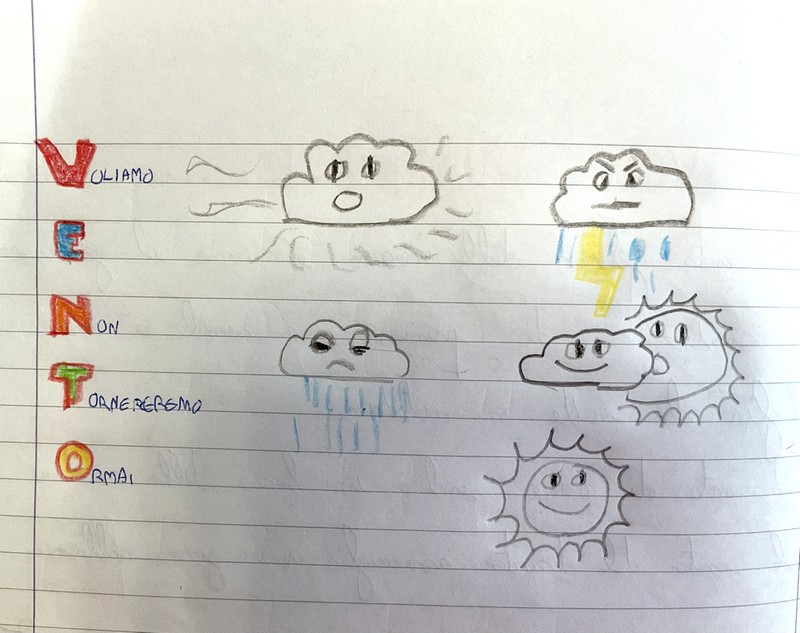 VOLIAMO
E
NON
TORNEREREMO
ORMAI